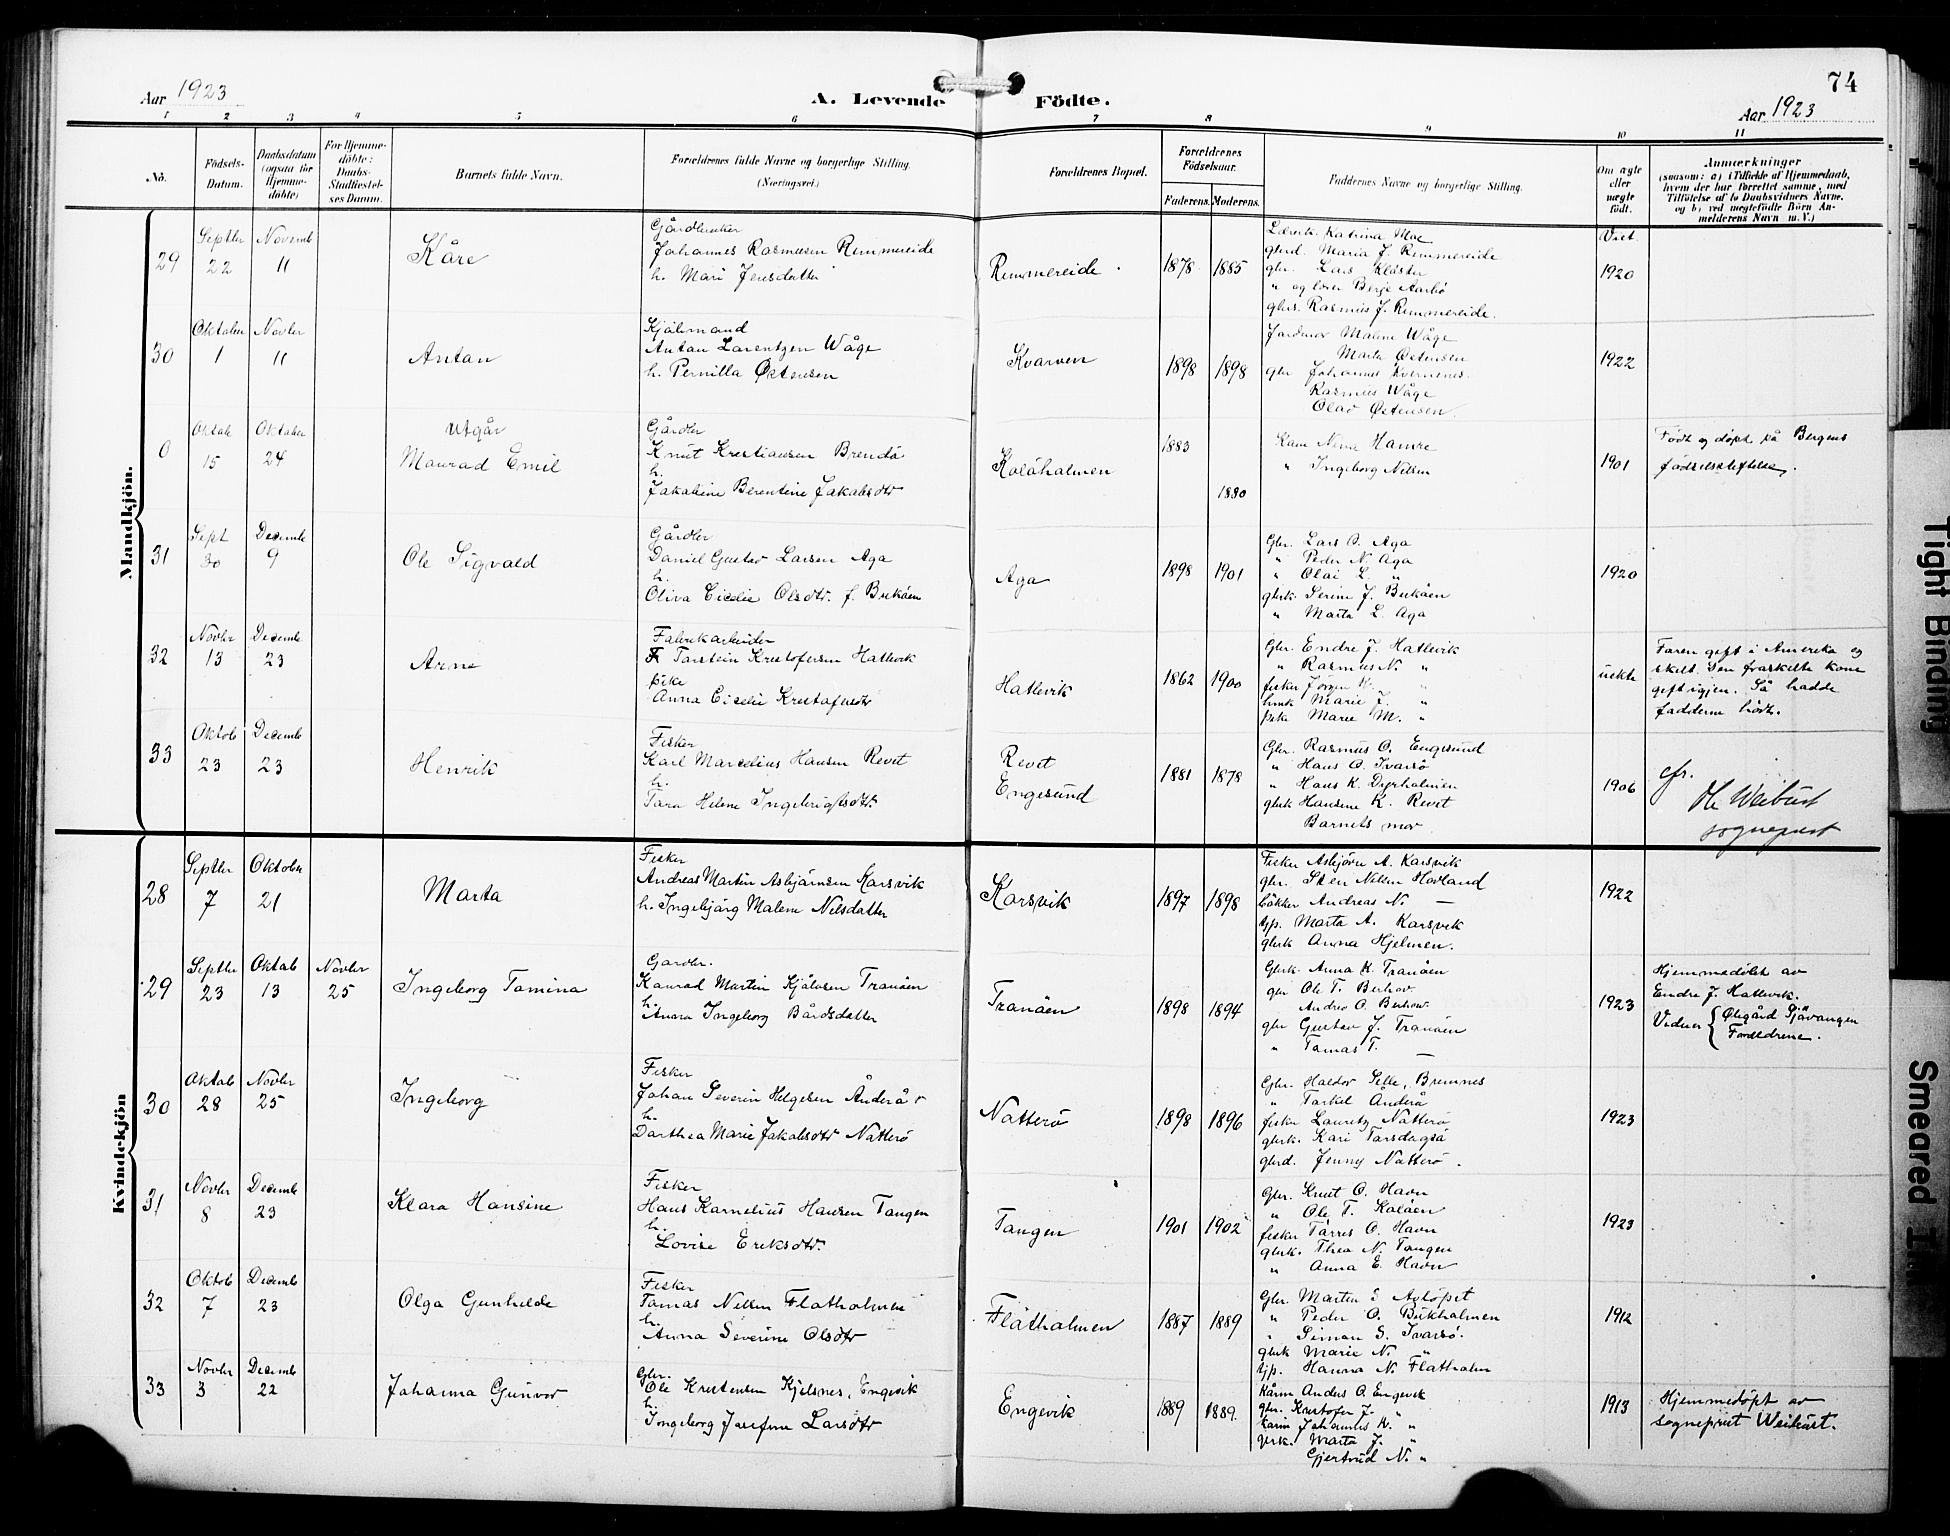 Aar 1923
A. Levende Födte.
74
Aar 1923
1 2 3 4 5 6 7 8 9 10 11
No.
Födsels-Datum.
Daabsdatum (ogsaa for Hjemme-döbte)
For Hjemme-döbte: Daabs-Stadfæstel-ses Datum.
Barnets fulde Navn.
Forældrenes fulde Navne og borgerlige Stilling.
(Næringsvei.)
Forældrenes Bopæl.
Forældrenes Födselsaar.
Faderens. Moderens.
Faddernes Navne og borgerlige Stilling.
Om ægte eller uægte födt.
Anmærkninger
(saasom: a) i Tilfælde af Hjemmedaab,
hvem der har forrettet samme, med
Tilföielse af to Daabsvidners Navne,
og b) ved uægtefödte Börn An-
melderens Navn m. V.)
Mandkjön.
29 Septbr 22 Novemb 11 Kåre
Gårdbruker
Johannes Rasmusen Remmereide
h. Mari Jensdatter
Remmereide 1878 1885
Katrina Moe
gbrd. Maria J. Remmereide
gbr. Lars Kloster
" og lærer Berje Aarbö
gbrs. Rasmus J. Remmereide.
1920
30 Oktober 1 Novbr 11 Antan
Anton Larentzen Wåge
h. Pernilla Østensen
Kvarven 1898 1898
Jordmor Malene Wåge
Marta Østensen
gbr Johannes Kvernenes
Rasmus Wåge
Olav Østensen
1922
0 Oktob 15 Oktober 24
Utgår
Monrad Emil
Gårdbr
Knut Kristiansen Brendö
h.
Jakobine Berentine Jakobsdtr
Kolåholmen 1883 1880
Nina Hamre
" Ingeborg Nilsen
1901
Født og döpt på Bergens
födselsstiftelse.
31 Sept 30 Decemb 9 Ole Sigvald
Gårdbr
Daniel Gustav Larsen Aga
h.
Oliva Cicelie Olsdtr. f. Bekåen
Aga 1898 1901
Gbr. Lars O. Aga
" Peder N. Aga
" Olai L. "
gbrk. Serine J. Bekåen
" Marta L. Aga
1920
32 Novbr 13 Decemb 23 Arne
Fabrikarbeider
Tarstein Kristofersen Hatlevik
pike
Anna Cicelie Kristofersdtr
Hatlevik 1862 1900
Gbr. Endre J. Hatlevik
" Rasmus N. "
fisker Jörgen K. "
Marie J. "
pike Marie M. "
uekte
Faren gift i Amerika og
skilt. Den fraskilte kone
gift igjen. Så hadde
fadderne hört.
33 Oktob 23 Decemb 23 Henrik
Fisker
Karl Marselius Hansen Revet
h.
Tara Helene Ingebrigtsdtr.
Revet
Engesund
1881 1878
Gbr. Rasmus O. Engesund
" Hans O. Ivarsö
" Hans K. Dyrholmen
gbrk Hansine K. Revet
Barnets mor
1906
cfr.
Ole Weibust
sogneprest
Kvindekjön
28 Septbr 7 Oktober 21 Marta
Fisker
Andreas Martin Asbjörnsen Korsvik
h. Ingebjörg Malene Nilsdatter
Korsvik 1897 1898
Fisker Asbjörn A. Korsvik
gbr. Sten Nilsen Hovland
bökker Andreas N. —
tjp. Marta A. Korsvik
gbrk Anna Hjelmen.
1922
29 Septbr 23 Oktob 13 Novbr 25 Ingeborg Tomina
Gardbr.
Konrad Martin Kjålvsen Tranåen
h.
Anna Ingeborg Bårdsdatter
Tranåen 1898 1894
Gbrk. Anna K. Tranåen
gbr Ole T. Berhov.
Andreo O. Berhov
gbr Gustav J. Tranåen
" Tomas T. —
1923
Hjemmedöbt av
Endre J. Hatlevik.
Vidner { Ølegård Sjåvangen
Forældrene.
30 Oktob 28 Novbr 25 Ingeborg
Fisker
Johan Severin Helgesen Åndersö
h.
Dorthea Marie Jakobsdtr Natterö
Natterö 1898 1896
Gbr. Haldor Selle, Bremnes
" Torkel Åndersö
fisker Lauritz Natterö
gbrk. Kari
gbrd. Jenny Natterö.
1923
31 Novbr 8 Decemb 23 Klara Hansine
Fisker
Hans Karnelius Hansen Tangen
h.
Lovise Eriksdtr.
Tangen 1901 1902
Gbr. Knut O. Havn
" Ole T. Kolåen
fisker Tarres O. Havn
gbrk. Thea N. Tangen
" Anna E. Havn
1923
32 Oktob 7 Decemb 23 Olga Gunhilde
Fisker
Tomas Nilsen Flatholmen
h.
Anna Severine Olsdtr
Flåtholmen 1887 1889
Gbr. Martin
" Peder O. Bukholmen
" Simon S. Ivarsö.
gbrk Marie N. "
tjp. Hanna N. Flatholm
1912
33 Novbr 3 Decemb 22 Johanna Gunvor
Gbr.
Ole Kristensen Kjelsnes, Engevik
h.
Ingeborg Josefine Larsdtr
Engevik 1889 1889.
Anders O. Engevik
gbr. Kristofer J. "
Johannes K. "
gbrk. Marta J. "
Gjertrud N. "
1913
Hjemmedöpt av
sogneprest Weibust.
Tight Binding
Smeared Ink